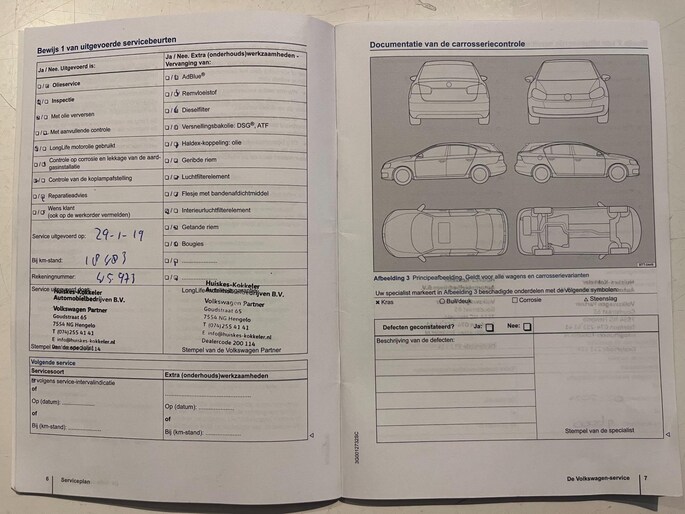 Bewijs 1 van uitgevoerde servicebeurten
Ja / Nee. Uitgevoerd is:
Olieservice
Inspectie
Met olie verversen
Met aanvullende controle
LongLife motorolie gebruikt
Controle op corrosie en lekkage van de aard-
gasinstallatie
Controle van de koplampafstelling
Reparatieadvies
Wens klant
(ook op de werkorder vermelden)
Service uitgevoerd op: 29-1-19
Bij km-stand: 18483
Rekeningnummer: 45973
Service uitgevoerd door:
Huiskes-Kokkeler
Automobielbedrijven B.V.
Volkswagen Partner
Goudstraat 65
7554 NG Hengelo
T (074)255 41 41
E info@huiskes-kokkeler.nl
Dealercode 200 114
Ja / Nee. Extra (onderhouds)werkzaamheden -
Vervanging van:
AdBlue®
Remvloeistof
Dieselfilter
Versnellingsbakolie: DSG®, ATF
Haldex-koppeling: olie
Geribde riem
Luchtfilterelement
Flesje met bandenafdichtmiddel
Interieurluchtfilterelement
Getande riem
Bougies
Huiskes-Kokkeler
Automobielbedrijven B.V.
Volkswagen Partner
Goudstraat 65
7554 NG Hengelo
T (074)255 41 41
E info@huiskes-kokkeler.nl
Dealercode 200 114
Stempel van de Volkswagen Partner
Volgende service
Servicesoort
volgens service-intervalindicatie
of
Op (datum):
of
Bij (km-stand):
Extra (onderhouds)werkzaamheden
Op (datum):
of
Bij (km-stand):
6 Serviceplan
Documentatie van de carrosseriecontrole
Afbeelding 3 Principeafbeelding. Geldt voor alle wagens en carrosserievarianten
Uw specialist markeert in Afbeelding 3 beschadigde onderdelen met de volgende symbolen:
Kras
Bult/deuk
Corrosie
Steenslag
Defecten geconstateerd? Ja: Nee:
Beschrijving van de defecten:
Stempel van de specialist
3G0012732SC
De Volkswagen-service 7